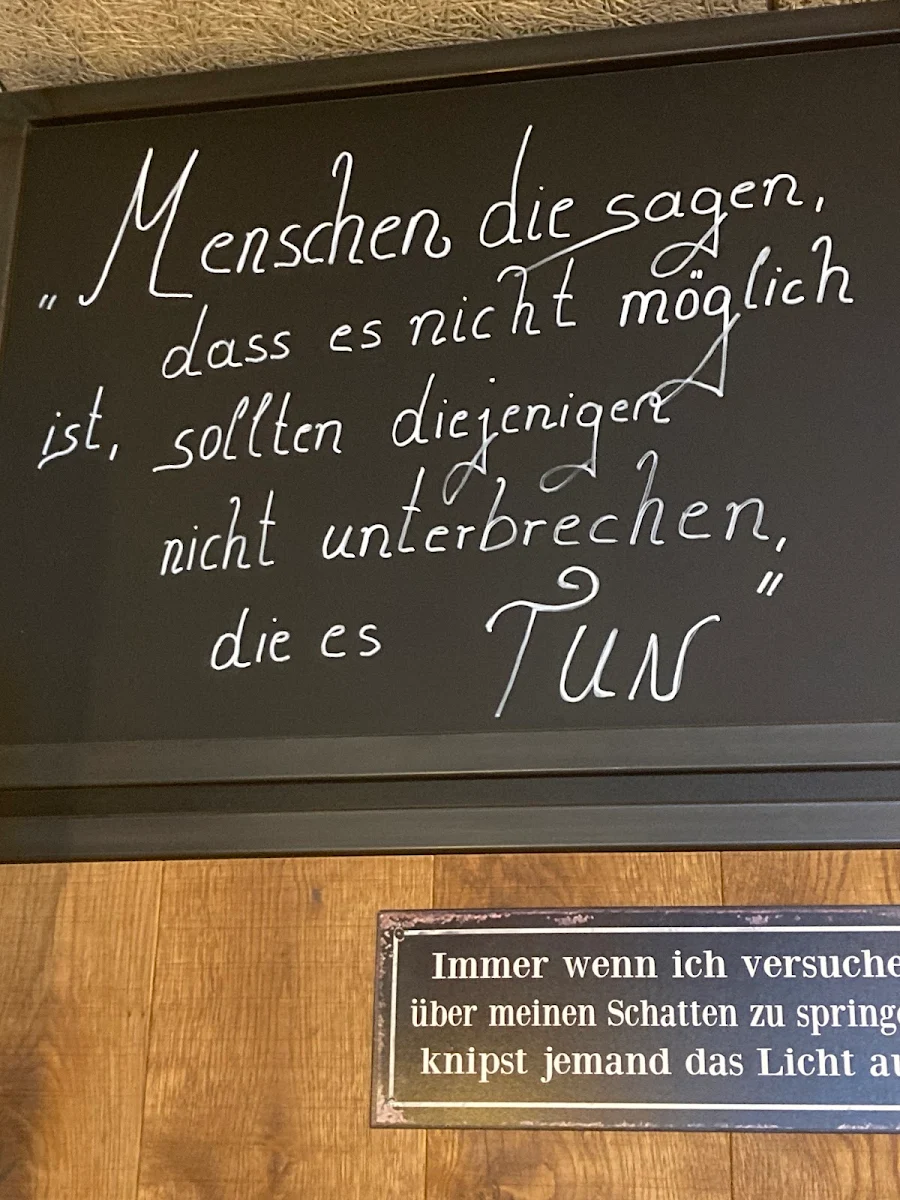 „Menschen die sagen,
dass es nicht möglich
ist, sollten diejenigen
nicht unterbrechen,
die es TUN"
Immer wenn ich versuche
über meinen Schatten zu
knipst jemand das Licht